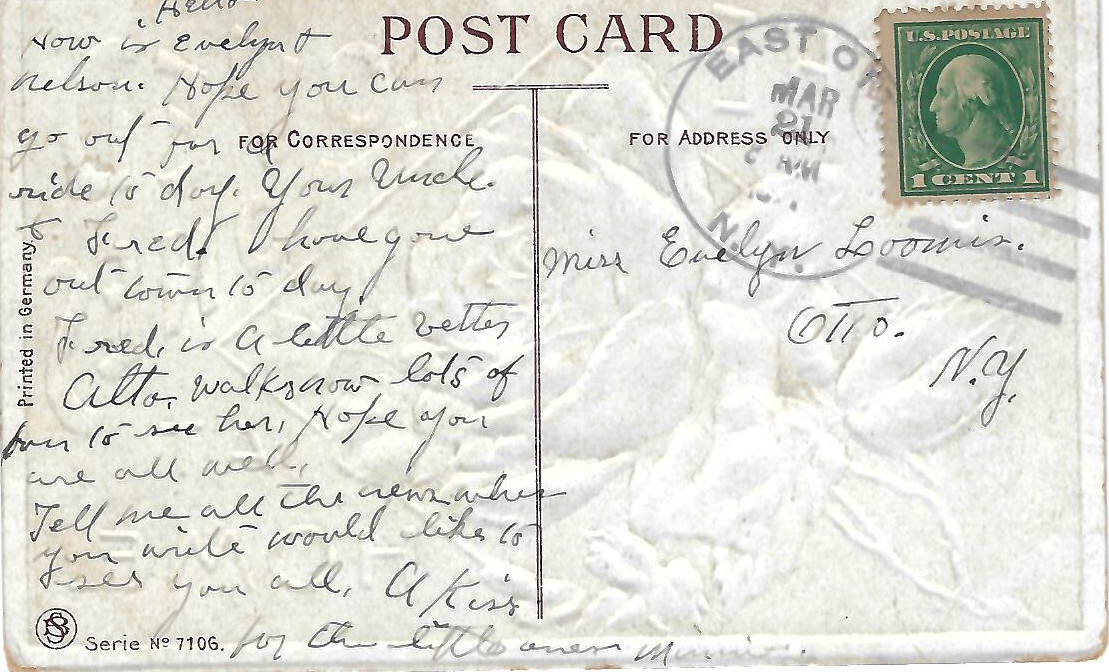 Hello
How is Evelyn &
Nelson. Hope you can
go out for a
ride to day. Your Uncle.
& Fred. have gone
out town to day.
Fred. is a little better
Alta. walks now lots of
fun to see her. Hope you
are all well.
Tell me all the news when
you write would like to
see you all. A Kiss
for the little ones Minnie.
POST CARD
FOR CORRESPONDENCE
FOR ADDRESS ONLY
EAST O
MAR
21
N.
U.S. POSTAGE
1 CENT 1
Miss Evelyn Loomis.
Otto.
N.Y.
Printed in Germany
Serie No 7106.